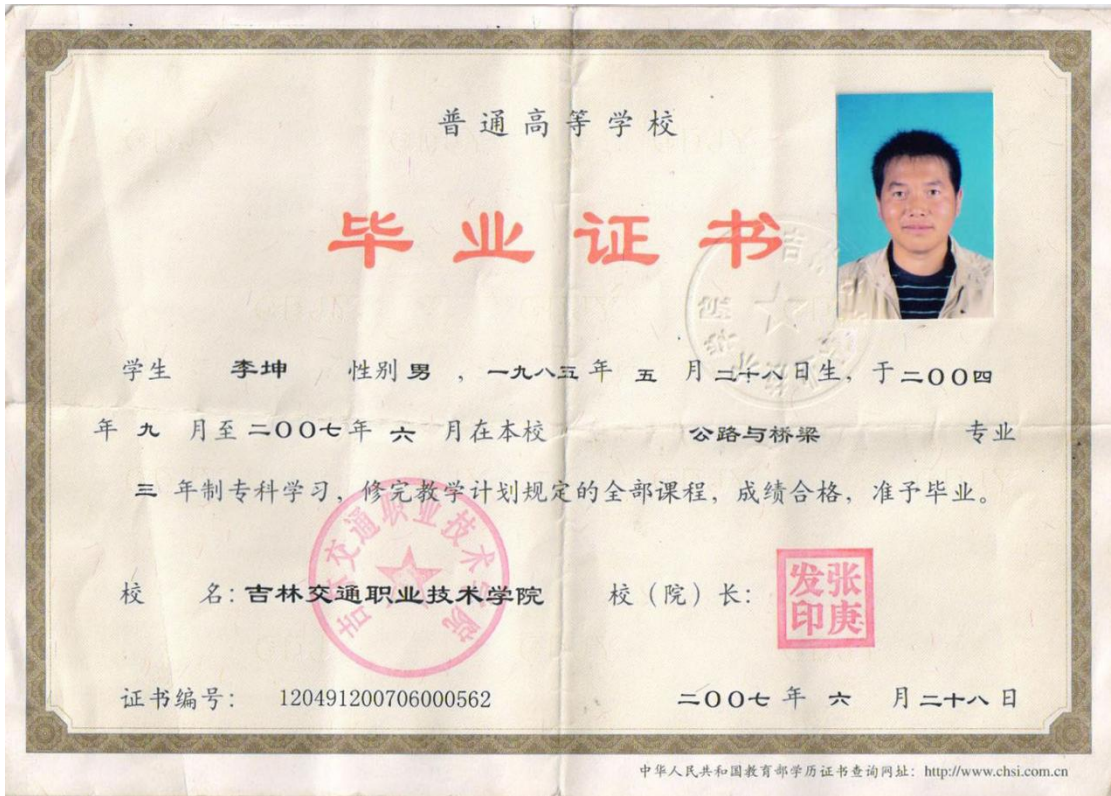 普通高等学校
毕业证书
学生 李坤 性别 男 ，一九八五 年 五 月 二十八 日生，于 二〇〇四
年 九 月至 二〇〇七 年 六 月在本校 公路与桥梁 专业
三 年制专科学习，修完教学计划规定的全部课程，成绩合格，准予毕业。
校 名：吉林交通职业技术学院 校（院）长：
吉林交通职业技术学院
张庚
发印
证书编号： 120491200706000562 二〇〇七 年 六 月 二十八 日
中华人民共和国教育部学历证书查询网址：http://www.chsi.com.cn